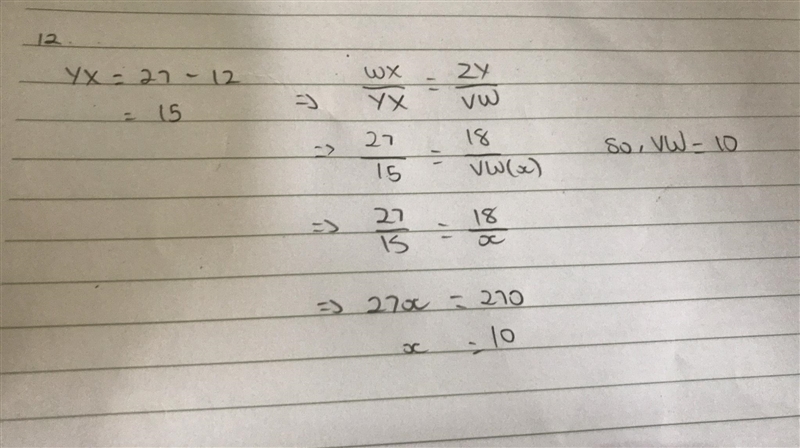 12.
YX = 27 - 12
= 15
=> WX/YX = ZY/VW
=> 27/15 = 18/VW(x) so, VW = 10
=> 27/15 = 18/x
=> 27x = 270
x = 10